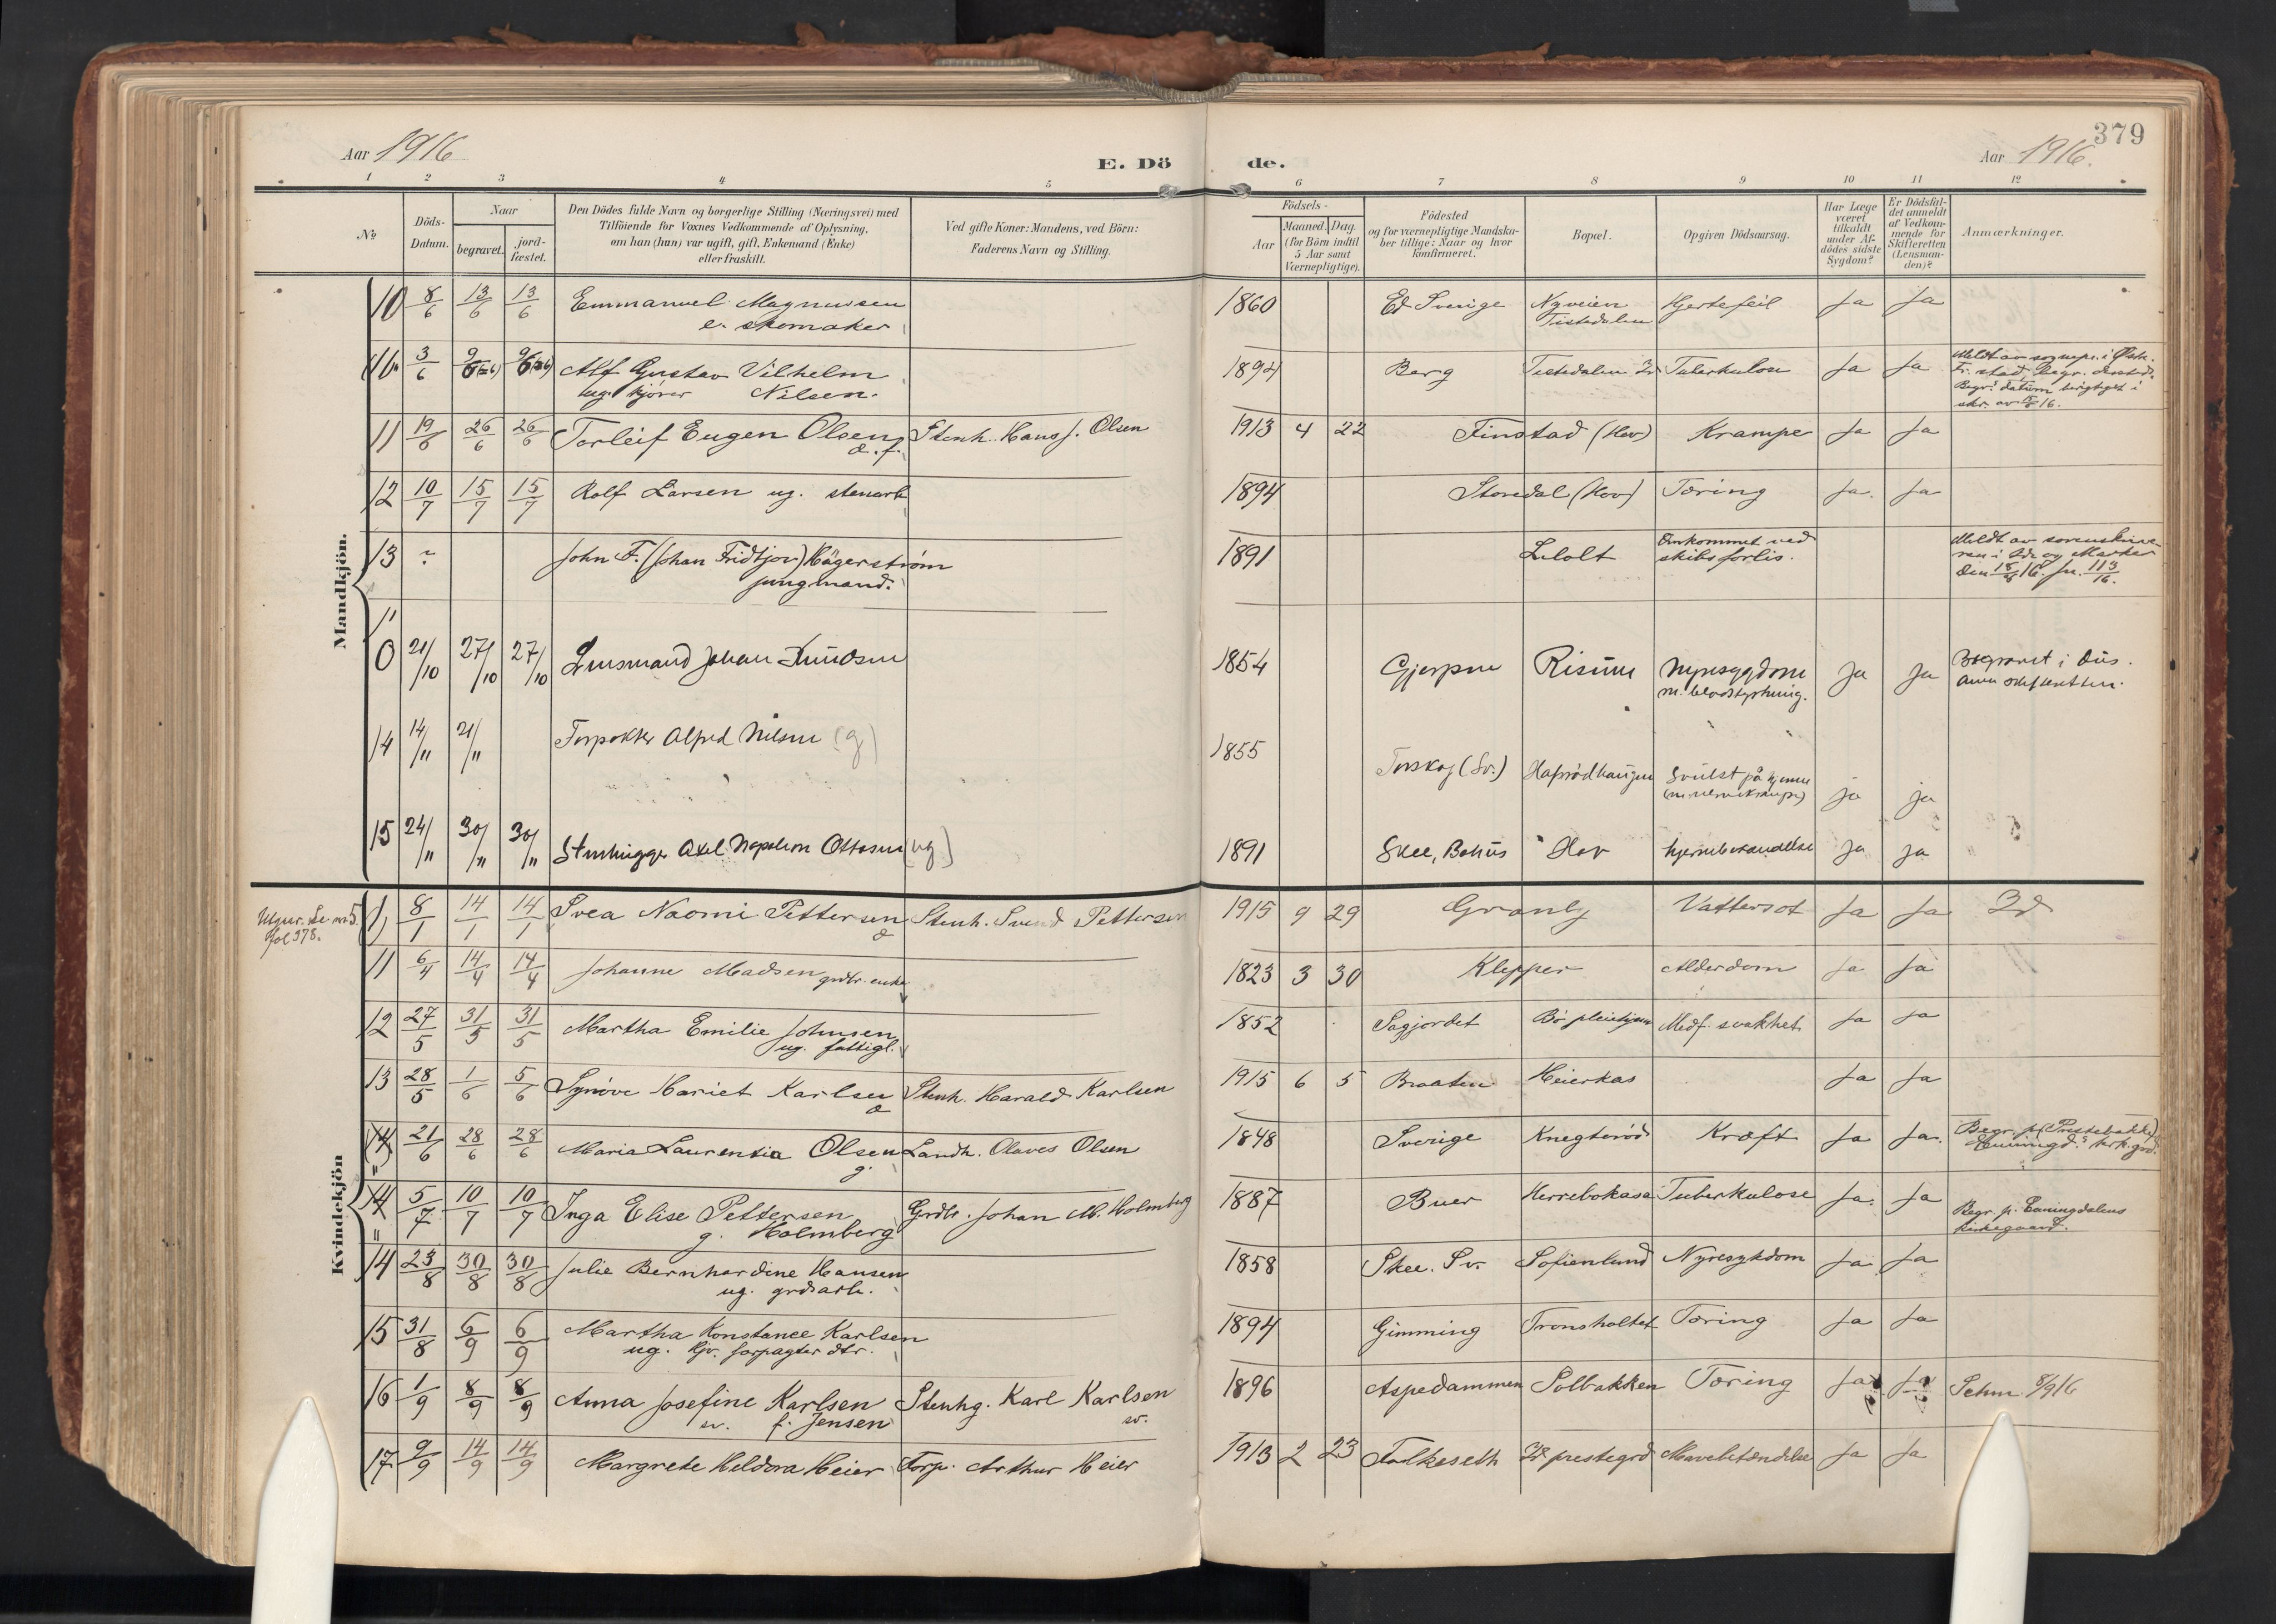 379
Aar 1916
E. Döde.
Aar 1916.
1 2 3 4 5 6 7 8 9 10 11 12
No
Döds-Datum.
Naar
begravet.
jord-fæstet.
Den Dödes fulde Navn og borgerlige Stilling (Næringsvei) med
Tilföiende for Voxnes Vedkommende af Oplysning,
om han (hun) var ugift, gift, Enkemand (Enke)
eller fraskilt.
Ved gifte Koner: Mandens, ved Börn:
Faderens Navn og Stilling.
Födsels-
Aar
Maaned. Dag.
(for Börn indtil
5 Aar samt
Værnepligtige).
Födested
og for værnepligtige Mandska-
ber tillige: Naar og hvor
konfirmeret.
Bopæl.
Opgiven Dödsaarsag.
Har Læge
været
tilkaldt
under Af-
dödes sidste
Sygdom?
Er Dödsfal-
det anmeldt
af Vedkom-
mende for
Skifteretten
(Lensman-
den)?
Anmærkninger.
Mandkjön.
10 8/6 13/6 13/6 Emmanuel Magnussen 1860 Ed Sverige Nyveien Hjertefeil Ja Ja
e. skomaker Tistedalen
3/6 Alf Gustav Vilhelm 1894 Berg Tistedalen Tuberkulose Ja Ja
ug. kjører Nilsen.
11 19/6 26/6 26/6 Torleif Eugen Olsen Stenh. Hans J. Olsen 1913 4 22 Finstad (Hov) Krampe Ja Ja
12 10/7 15/7 15/7 Rolf Larsen ug. stenarb 1894 Storedal (Hov) Tæring Ja. Ja
13 ? John F. (Johan Fridtjov) Hägerström 1891 Lilolt Omkommet ved
jungmand. skibsforlis.
Meldt av sorenskrive-
ren i Idd og Marker
den 18/8 16. jn. 113/16.
0 21/10 27/10 27/10 Lensmand Johan Knudsen 1854 Gjerpen Risum Nyresygdom Ja Ja
14 14/11 21/11 Forpakter Alfred Nilsen (g) 1855 Torskog (Sv.) Hafsrødhaugen Svulst på hjernen ja ja
15 24/11 30/11 30/11 Stenhugger Axel Napoleon Ottosen (ug) 1891 Skee, Bohus Hov hjernebetændelse Ja ja
Kvindekjön
fol 378.
1) 8/1 14/1 14/1 Svea Naomi Pettersen Stenh. Svend Pettersen 1915 9 29 Granly Vattersot Ja Ja Id
11 6/4 14/4 14/4 Johanne Madsen grdbr. enke 1823 3 30 Klepper Alderdom Ja Ja
12 27/5 31/5 31/5 Martha Emilie Johnsen 1852 Sagjordet Bö pleiehjem Medf. svakhet Ja Ja
ug. fattigl.
13 28/5 1/6 5/6 Synöve Hariet Karlsen Stenh. Harald Karlsen 1915 6 5 Braaten Heierkas Ja Ja
(14) 21/6 28/6 28/6 Maria Laurentia Olsen Landh. Olaves Olsen 1848 Sverige Knegterød Kræft Ja Ja.
g.
14 5/7 10/7 10/7 Inga Elise Pettersen Grdbr. Johan M. Holmberg 1887 Buer Herrebokasa Tuberkulose Ja. Ja
g. Holmberg
Begr. p. Enningdalens
kirkegaard.
14 23/8 30/8 30/8 Julie Bernhardine Hansen 1858 Skee. Sv. Sofienlund Nyresykdom Ja Ja
ug. grdsarb.
15 31/8 6/9 6/9 Martha Konstance Karlsen 1894 Gimming Tronsholtet Tæring Ja Ja
ug. kjv. forpagter dtr.
16 1/9 8/9 8/9 Anna Josefine Karlsen Stenhg. Karl Karlsen 1896 Aspedammen Solbakken Tæring Ja Ja Schm. 8/9 16
sv. f. Jensen sv.
17 9/9 14/9 14/9 Margrete Heldora Heier Forp. Arthur Heier 1913 2 23 Folkeseth Id prestegrd Mavebetændelse Ja Ja